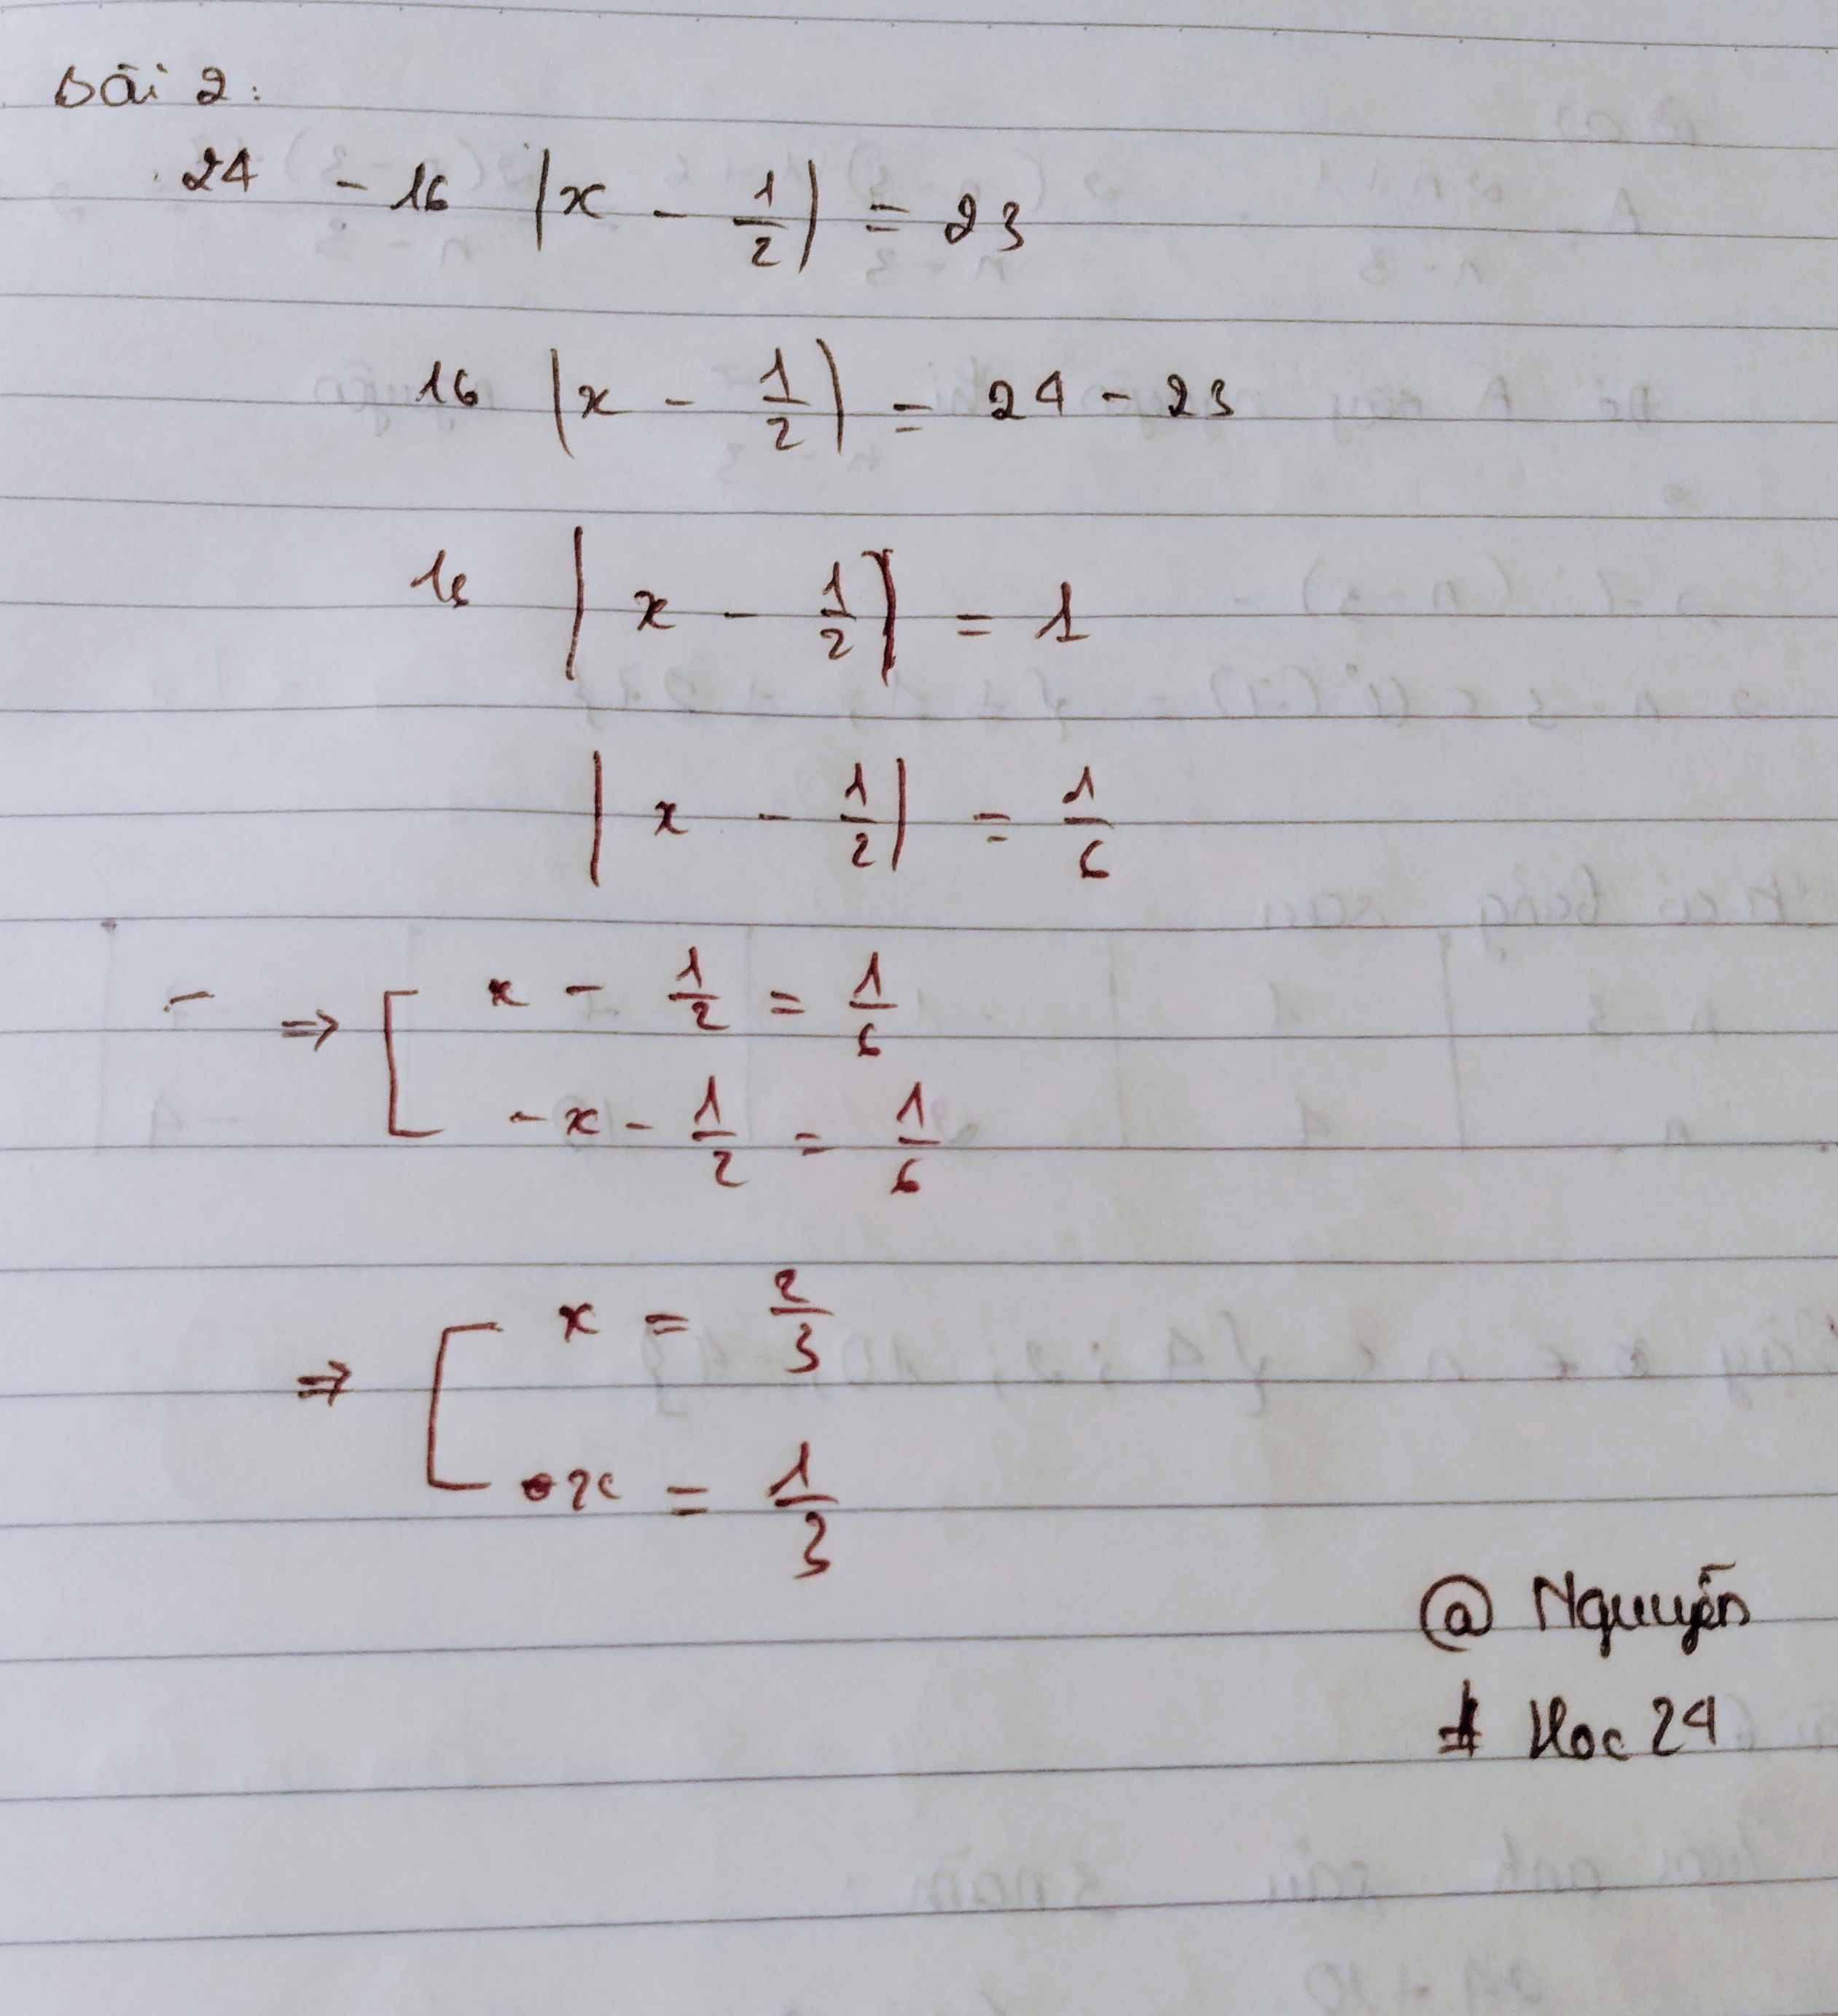 Bài 2:
24 - 16 |x - 1/2| = 23
16 |x - 1/2| = 24 - 23
16 |x - 1/2| = 1
|x - 1/2| = 1/6
⇒ [ x - 1/2 = 1/6
-x - 1/2 = 1/6
⇒ [ x = 2/3
x = 1/3
@ Nguyễn
# Hoc 24